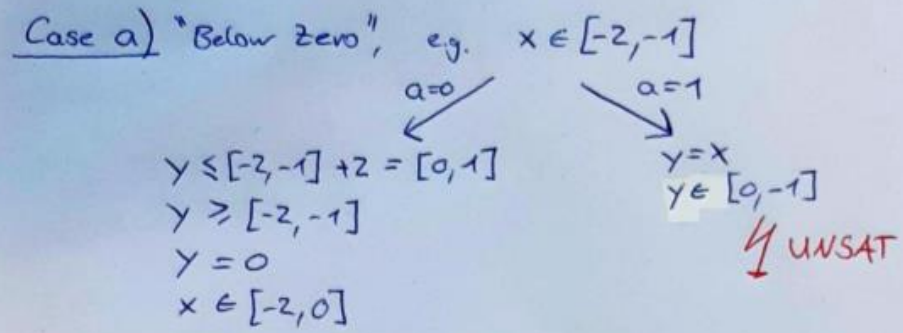 Case a) "Below Zero", e.g. x ∈ [-2,-1]
a=0 a=1
y ≤ [-2,-1] +2 = [0,1]
y ≥ [-2,-1]
y = 0
x ∈ [-2,0]
y=x
y ∈ [0,-1]
UNSAT